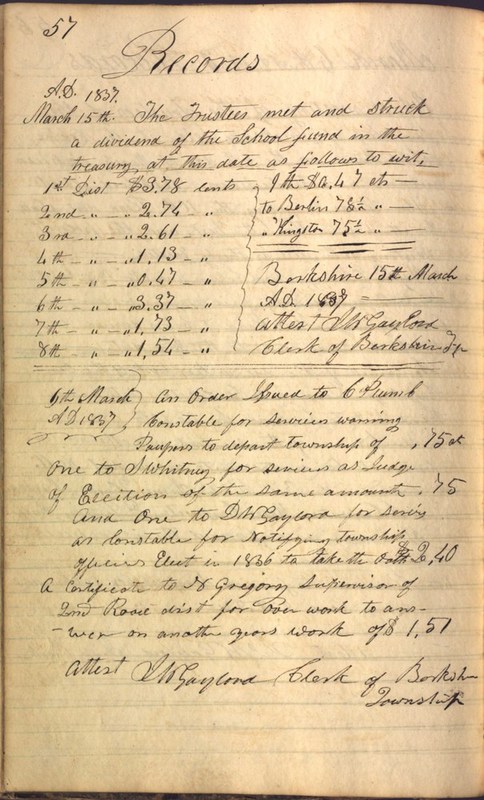 57
Records
A.D. 1837.
March 15th. The Trustees met and struck
a dividend of the School fund in the
treasury, at this date as follows to wit,
1st Dist $3.78 cents
2nd " " 2.74 "
3rd " " 2.61 "
4th " " 1.13 "
5th " " 0.47 "
6th " " 3.37 "
7th " " 1,73 "
8th " " 1,54 "
9th $0.47 cts
to Berlin 78½ "
" Kingston 75½ "
Berkshire 15th March
A.D. 1837
attest Gaylord
Clerk of Berkshire Tp
6th March
AD 1837
An Order Issued to C Plumb
Constable for services warning
Paupers to depart township of , 75 ct
One to J Whitney for services as Judge
Of Election of the same amount , 75
And One to D W Gaylord for serv
as Constable for Notifying township
officers Elect in 1836 to take the Oath $2,40
A Certificate to N Gregory Supervisor of
2nd Road dist for over work to ans-
-wer on another years work of $ 1,51
attest Gaylord Clerk of Berksh
Township